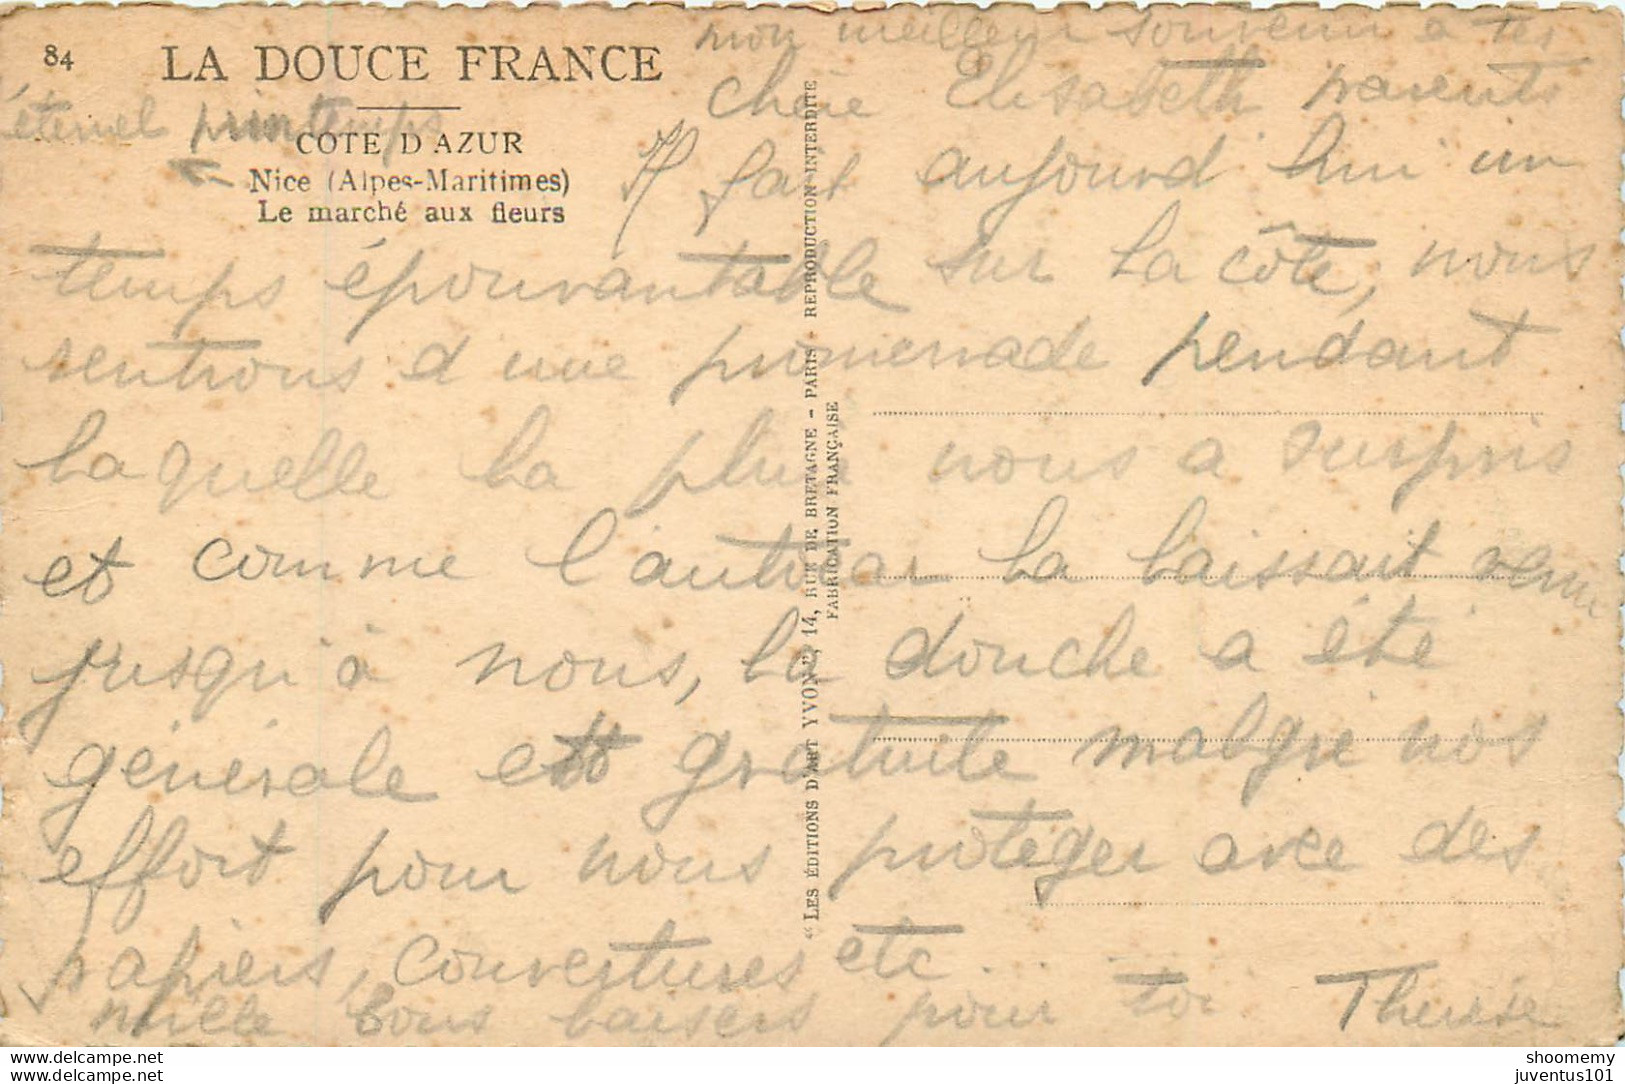 84 LA DOUCE FRANCE
éternel printemps
COTE D'AZUR
Nice (Alpes-Maritimes)
Le marché aux fleurs
mon meilleur souvenir à tes
parents
Chère Elisabeth
Il fait aujourd'hui un
temps épouvantable sur la côte, nous
rentrons d'une promenade pendant
laquelle la pluie nous a surpris
et comme l'autocar la laissait venir
jusqu'à nous, la douche a été
générale et gratuite malgré nos
effort pour nous protéger avec des
papiers, couvertures etc...
mille bons baisers pour toi Therese
"LES ÉDITIONS D'ART YVON", 14, RUE DE BRETAGNE - PARIS - REPRODUCTION INTERDITE
FABRICATION FRANÇAISE
les-petites-cartes-de-manon
les-petites-cartes-de-manon
shoomemy
juventus101